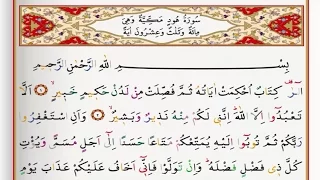 سُورَةُ هُودٍ مَكِّيَّةٌ وَهِيَ
مِائَةٌ وَثَلٰثٌ وَعِشْرُونَ اٰيَةً
بِسْمِ اللّٰهِ الرَّحْمٰنِ الرَّحِيمِ
الٓرٰ كِتَابٌ اُحْكِمَتْ اٰيَاتُهُ ثُمَّ فُصِّلَتْ مِنْ لَدُنْ حَكِيمٍ خَبِيرٍ اَلَّا
تَعْبُدُٓوا اِلَّا اللّٰهَ اِنَّنِي لَكُمْ مِنْهُ نَذِيرٌ وَبَشِيرٌ وَاَنِ اسْتَغْفِرُوا
رَبَّكُمْ ثُمَّ تُوبُٓوا اِلَيْهِ يُمَتِّعْكُمْ مَتَاعًا حَسَنًا اِلٰٓى اَجَلٍ مُسَمًّى وَيُؤْتِ
كُلَّ ذِي فَضْلٍ فَضْلَهُ وَاِنْ تَوَلَّوْا فَاِنِّٓي اَخَافُ عَلَيْكُمْ عَذَابَ يَوْمٍ